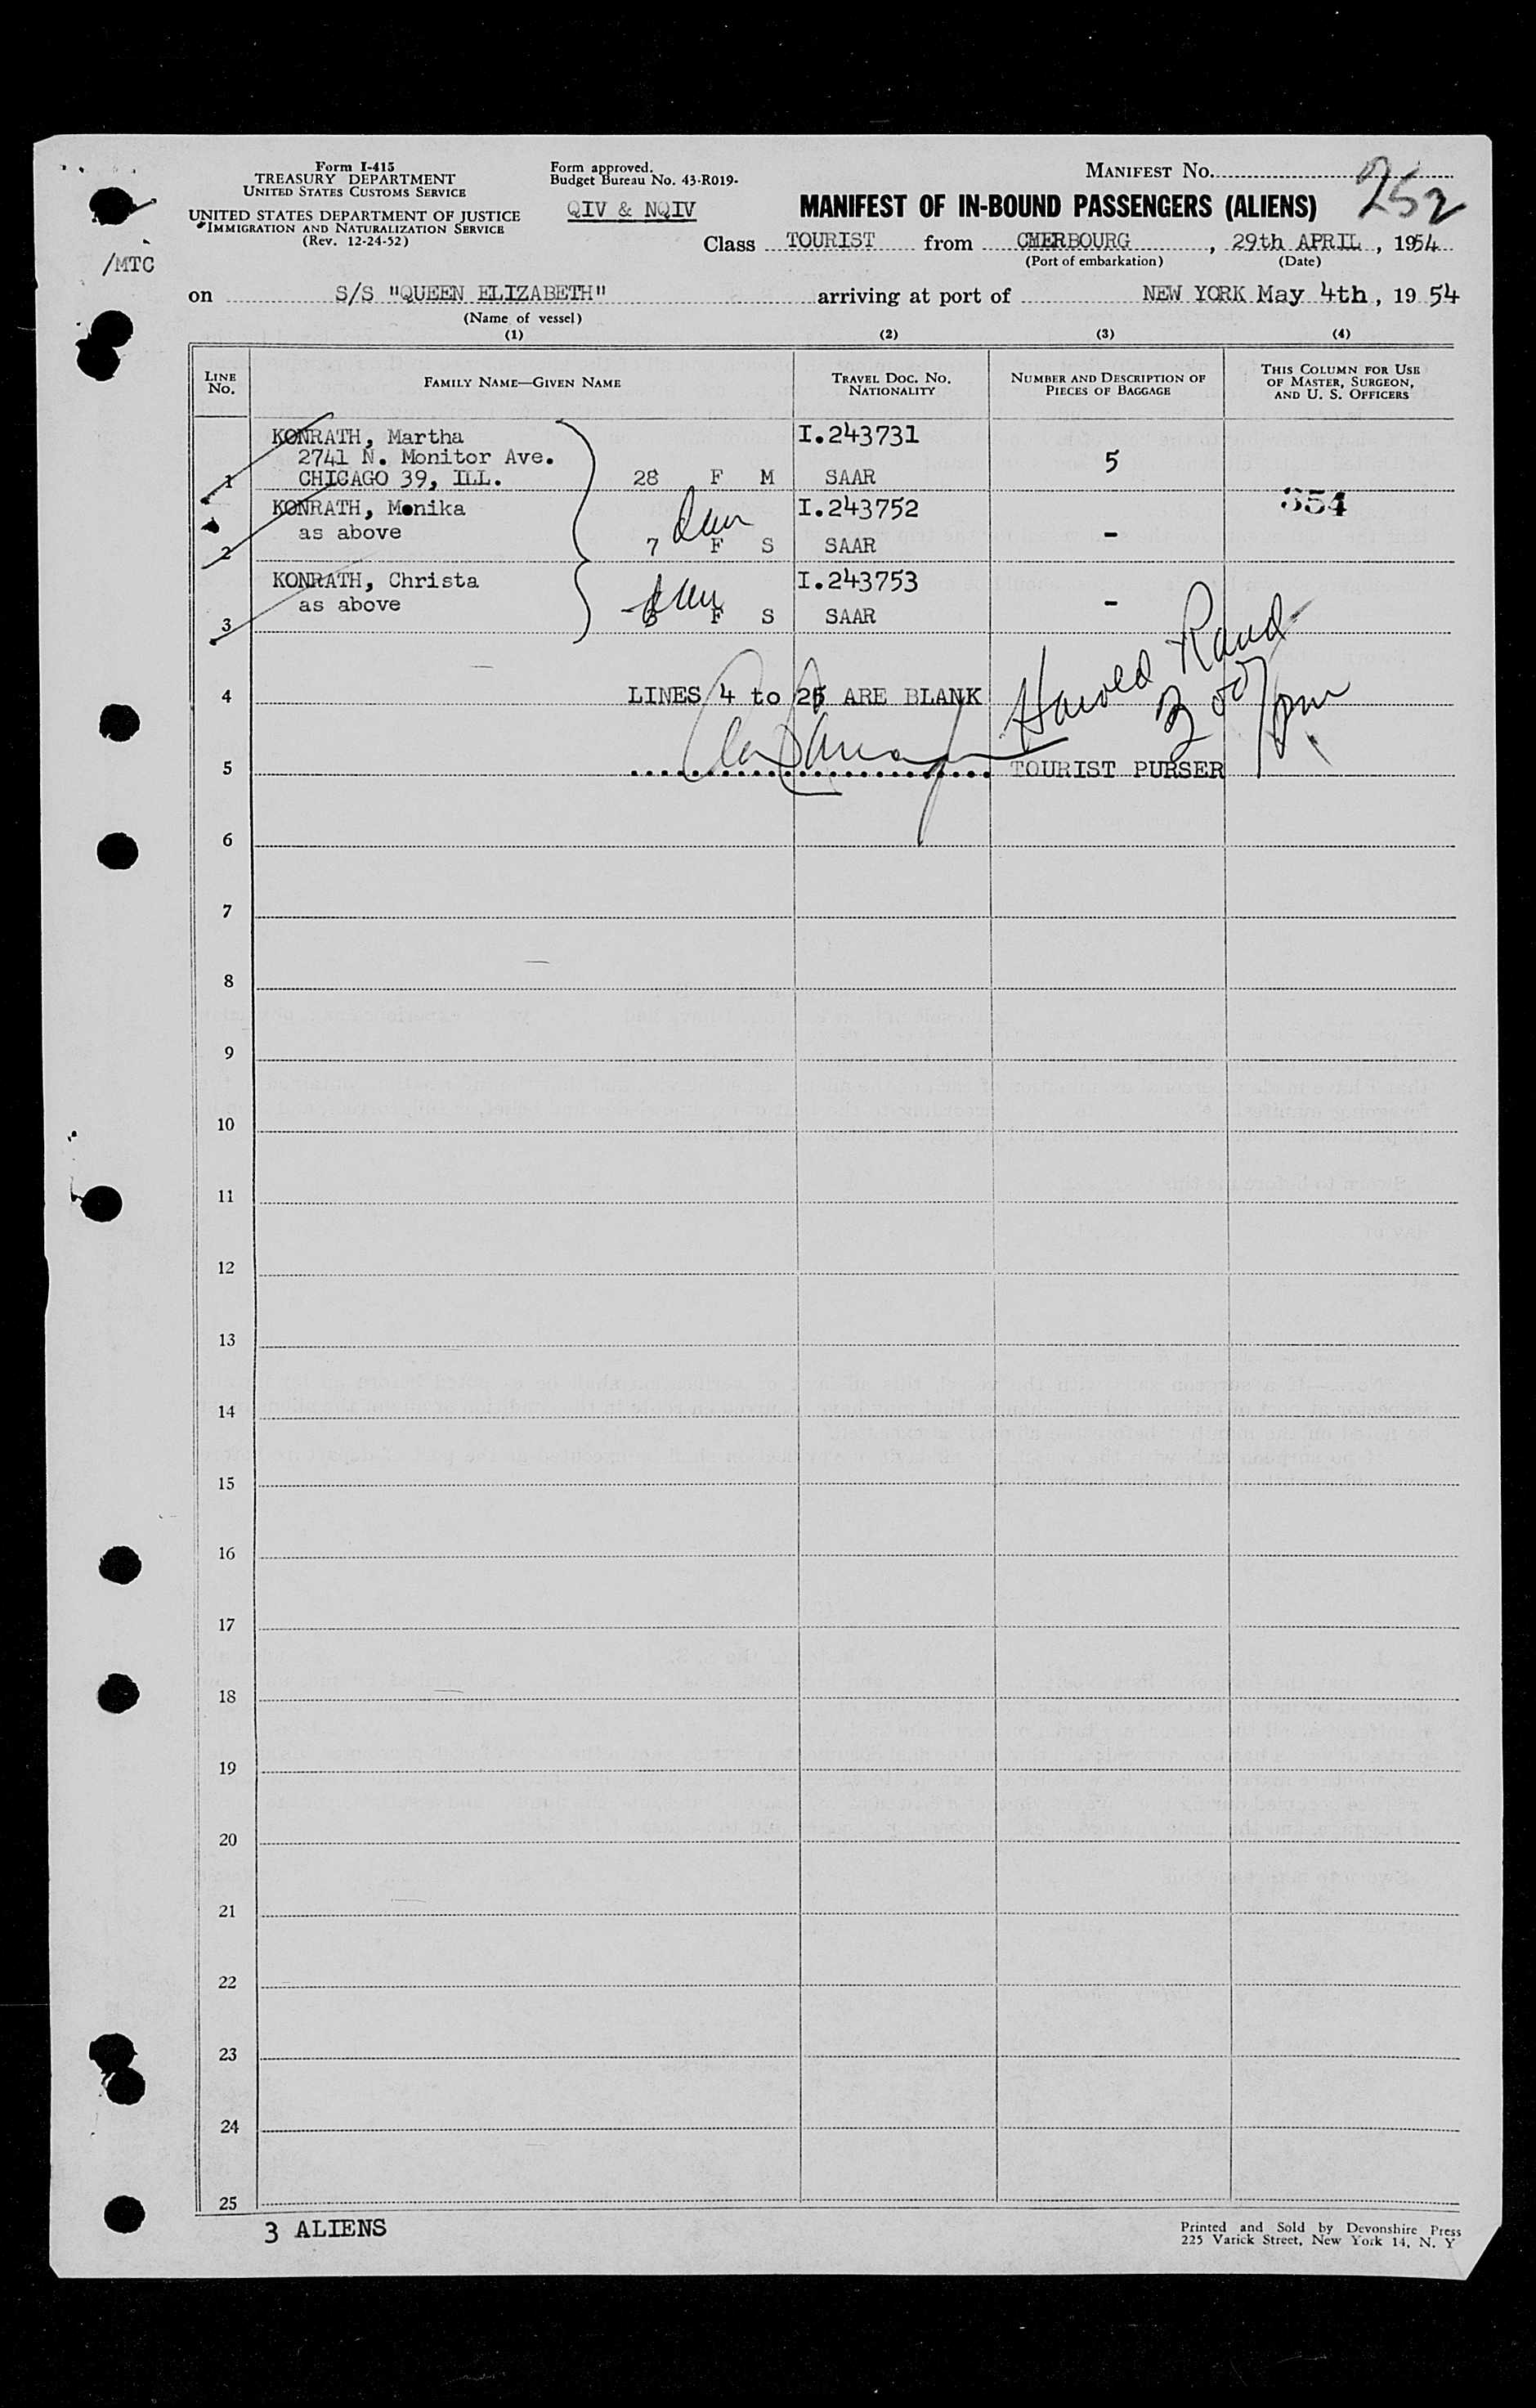 Form I-415
TREASURY DEPARTMENT
UNITED STATES CUSTOMS SERVICE
UNITED STATES DEPARTMENT OF JUSTICE
IMMIGRATION AND NATURALIZATION SERVICE
(Rev. 12-24-52)
/MTC
Form approved.
Budget Bureau No. 43-R019-
QIV & NQIV
MANIFEST NO. 252
MANIFEST OF IN-BOUND PASSENGERS (ALIENS)
Class TOURIST from CHERBOURG, 29th APRIL, 1954
(Port of embarkation) (Date)
on S/S "QUEEN ELIZABETH" arriving at port of NEW YORK May 4th, 1954
(Name of vessel)
(1) (2) (3) (4)
LINE NO. FAMILY NAME—GIVEN NAME TRAVEL DOC. NO. NATIONALITY NUMBER AND DESCRIPTION OF PIECES OF BAGGAGE THIS COLUMN FOR USE OF MASTER, SURGEON, AND U. S. OFFICERS
KONRATH, Martha I.243731
2741 N. Monitor Ave. 5
1 CHICAGO 39, ILL. 28 F M SAAR
KONRATH, Monika I.243752 354
as above -
2 7 F S SAAR
KONRATH, Christa I.243753
as above -
3 F S SAAR
Harold Rand
4 LINES 4 to 25 ARE BLANK
5 TOURIST PURSER
6
7
8
9
10
11
12
13
14
15
16
17
18
19
20
21
22
23
24
25
3 ALIENS
Printed and Sold by Devonshire Press
225 Varick Street, New York 14, N. Y